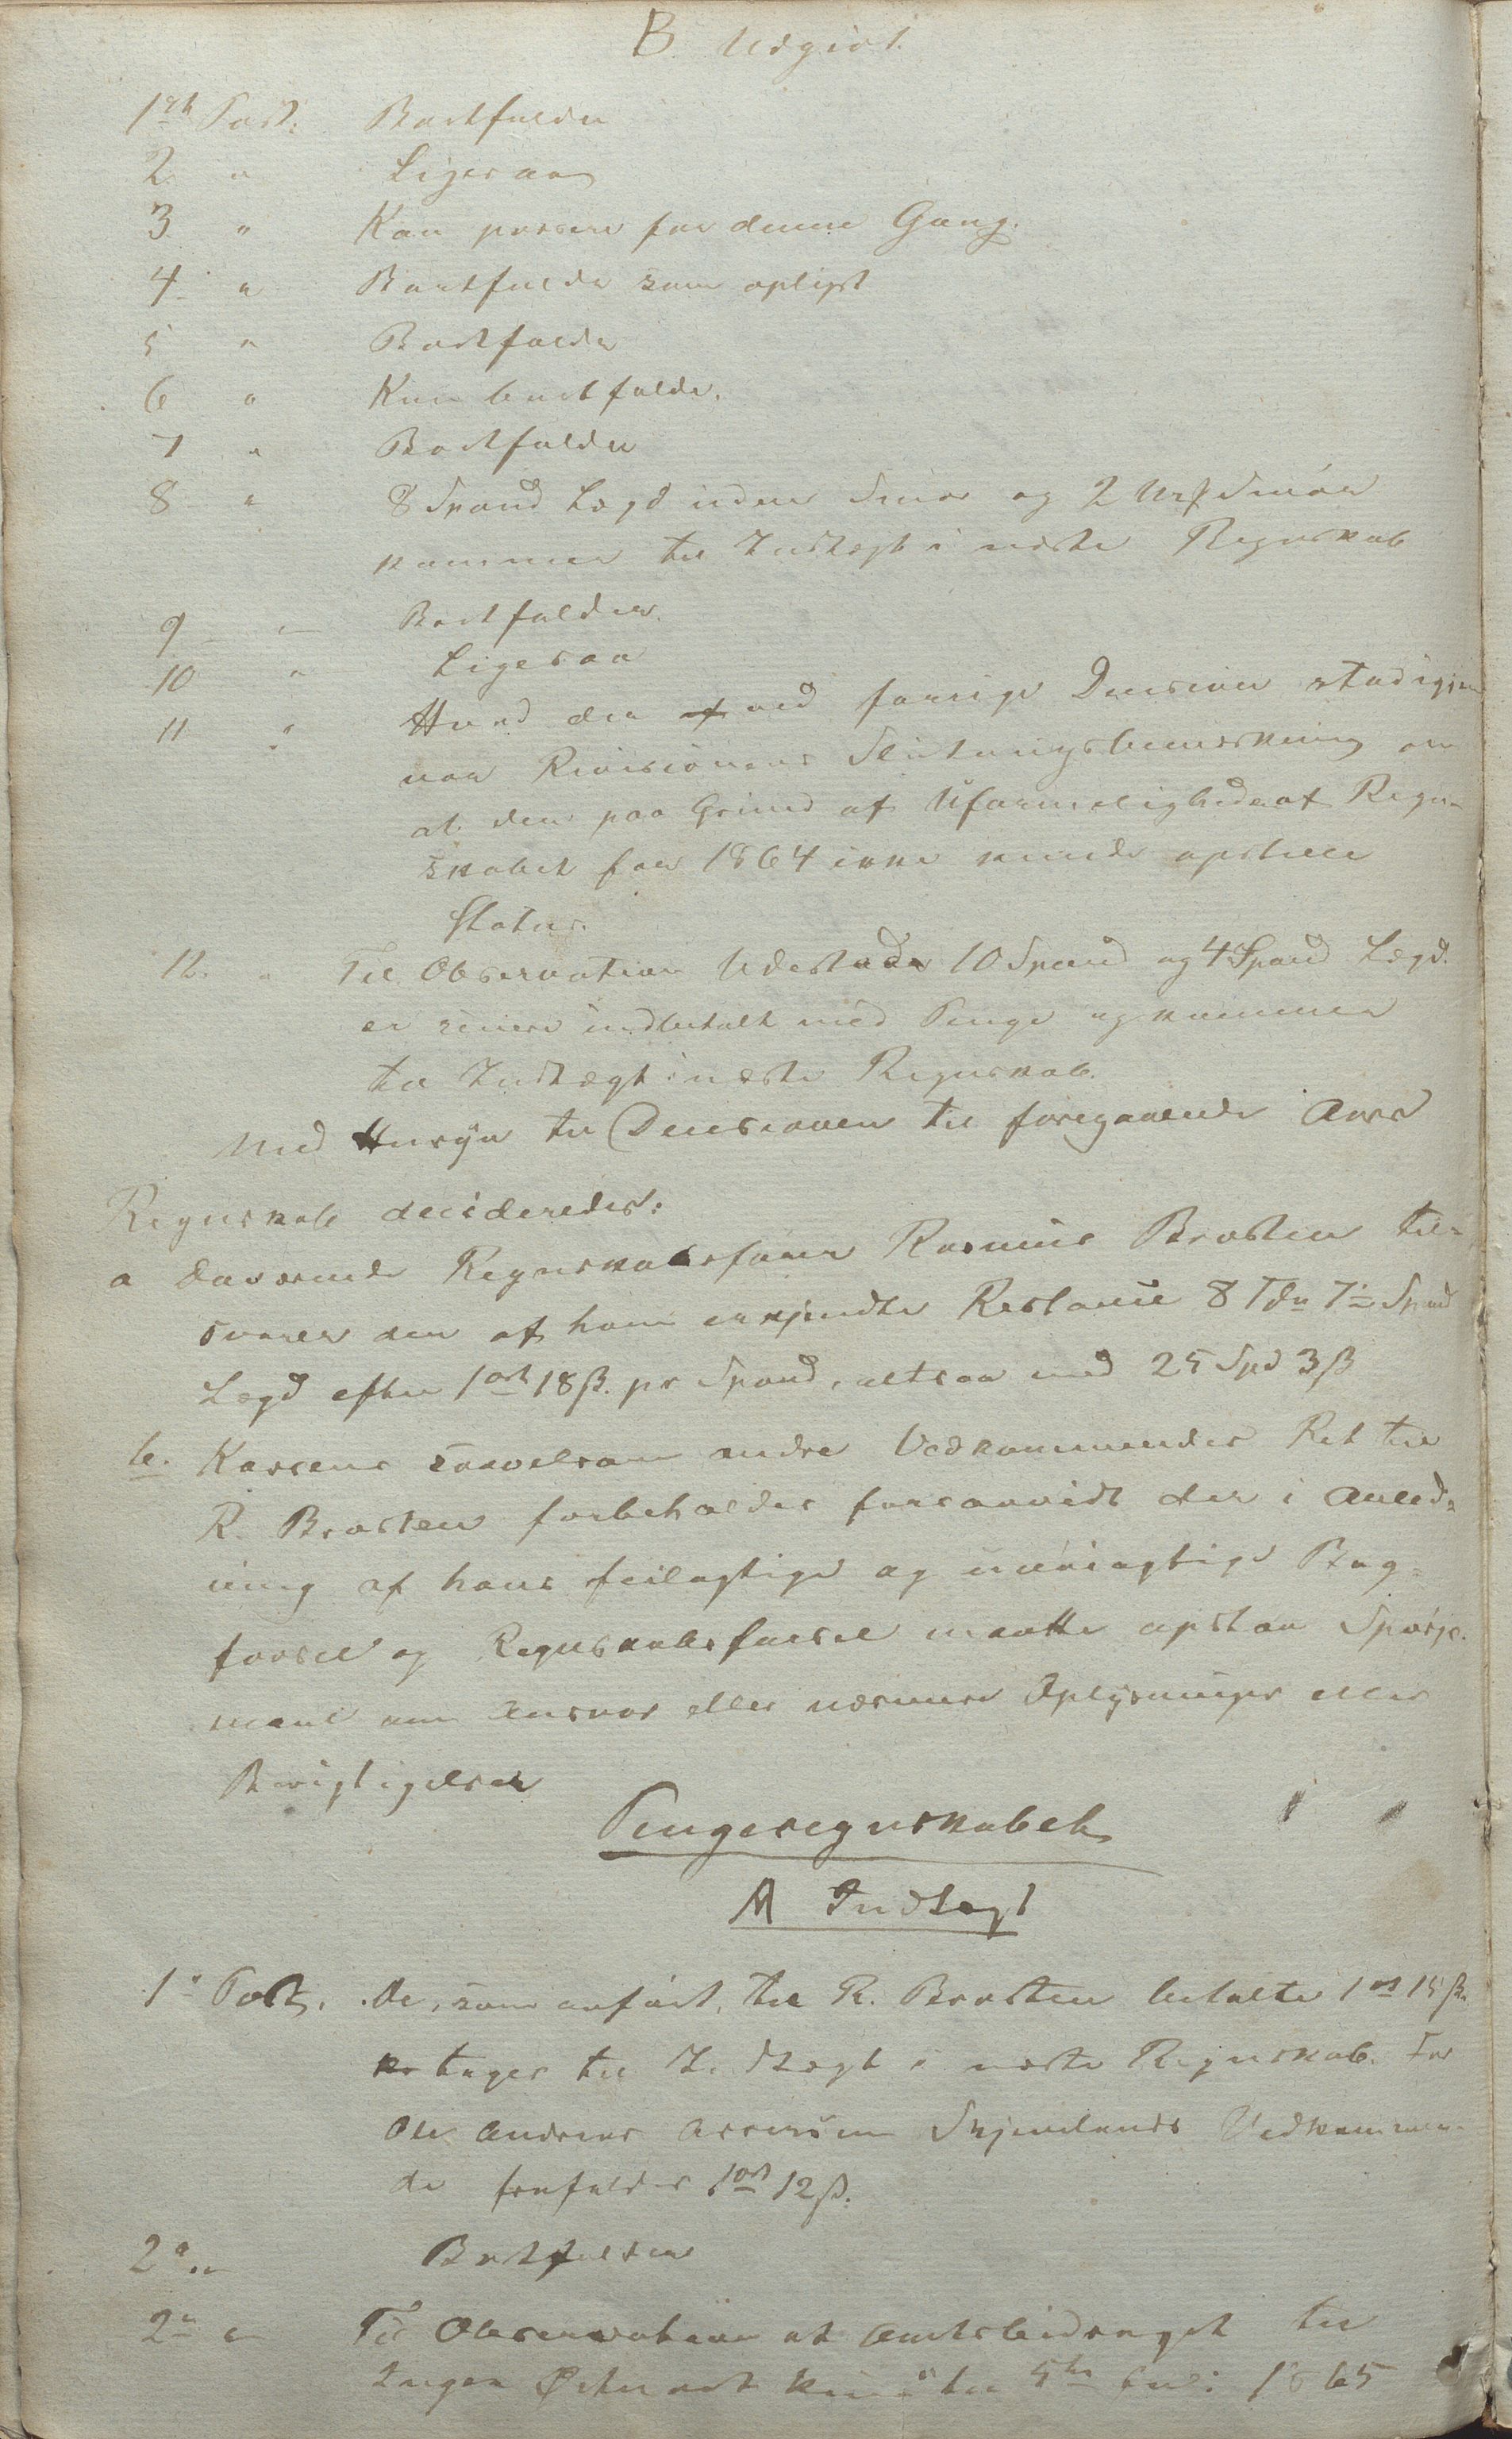 B. Udgivt.
1ste Post: Bortfalder
2 " Ligesaa
3 " Kan passere for denne Gang.
4 " Bortfalder som oplyst
5 " Bortfalder
6 " Kan bortfalde.
7 " Bortfalder
8 " 8 Spand Lægd uden Smör og 2 Smör
kommer til Indtægt i næste Regnskab
9 " Bortfalder.
10 " Ligesaa
11 " Hvad der ved forrige Decision
var Revisionens Slutningsbemærkning om
at den paa Grund af Uformeligheder af Regn-
skabet for 1864 ikke kunde opstille
Status.
12. " Til Observation Udestaaende 10 Spand og 4 Spand Lægd.
er senere indbetalt med Penge og kommer
til Indtægt i næste Regnskab.
Med Hensyn til Decisionen til foregaaende Aars
Regnskab decideredes:
a Daværende Regnskabsfører Rasmus Brosten til-
svarer den af ham erkjendte Restance 8 Tdr 7 Spand
Lægd efter 1 ort 18 ß. pr Spand, altsaa med 25 Spd 3 ß
b. Kassens saavelsom andre Vedkommendes Ret til
R. Brosten forbeholdes forsaavidt der i Anled-
ning af hans feilagtige og unöiagtige Bog-
førsel og Regnskabsførsel maatte opstaa Spörgs-
maal om Ansvar eller nærmere Oplysninger eller
Berigtigelser
Pengeregnskabet
A Indtægt
1ste Post. De, som anført, til R. Brosten betalte 1 ort 15 ß.
tages til Indtægt i næste Regnskab. For
Ole Andreas Assersen Skjeulands Vedkommen-
de frafalder 1 ort 12 ß.
2 " Bortfalder
2 " Til Observation at
1865